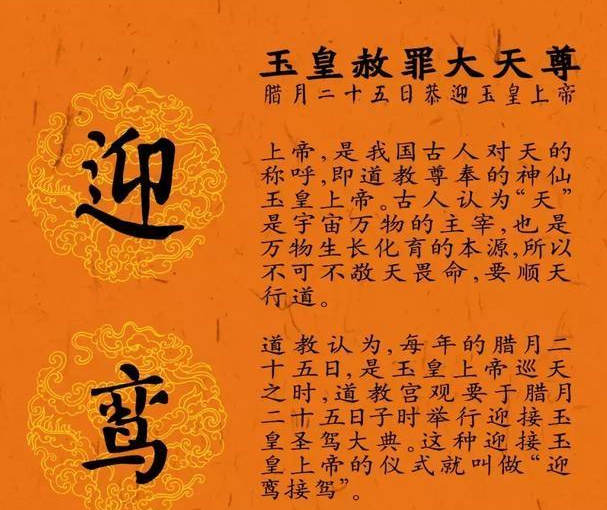 玉皇赦罪大天尊
腊月二十五日恭迎玉皇上帝
迎
上帝,是我国古人对天的
称呼,即道教尊奉的神仙
玉皇上帝。古人认为“天”
是宇宙万物的主宰,也是
万物生长化育的本源,所以
不可不敬天畏命,要顺天
行道。
鸾
道教认为,每年的腊月二
十五日,是玉皇上帝巡天
之时,道教宫观要于腊月
二十五日子时举行迎接玉
皇圣驾大典。这种迎接玉
皇上帝的仪式就叫做“迎
鸾接驾”。